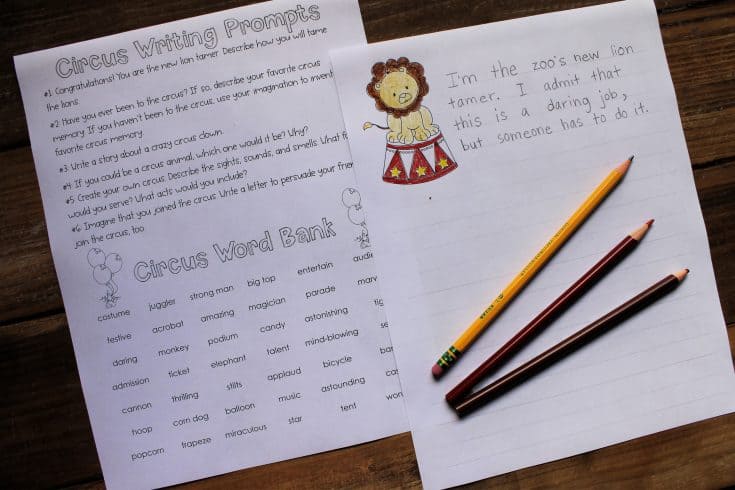 Circus Writing Prompts
#1 Congratulations! You are the new lion tamer. Describe how you will tame
the lions.
#2 Have you ever been to the circus? If so, describe your favorite circus
memory. If you haven't been to the circus, use your imagination to invent
favorite circus memory.
#3 Write a story about a crazy circus clown.
#4 If you could be a circus animal, which one would it be? Why?
#5 Create your own circus. Describe the sights, sounds, and smells. What
would you serve? What acts would you include?
#6 Imagine that you joined the circus. Write a letter to persuade your
join the circus, too
Circus Word Bank
costume juggler strong man big top entertain
festive acrobat amazing magician parade
daring monkey podium candy astonishing
admission ticket elephant talent mind-blowing
cannon thrilling stilts applaud bicycle
hoop corn dog balloon music astounding
popcorn trapeze miraculous star tent
I'm the zoo's new lion
tamer. I admit that
this is a daring job,
but someone has to do it.